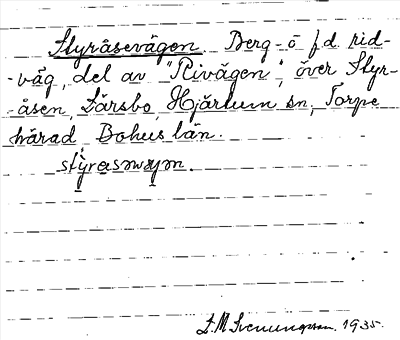 Styråsevägen. Berg-ö f.d. rid-
-väg, del av "Rivägen", över Styr-
-åsen, Lärsbo, Hjärtum sn, Torpe
härad Bohus län.
L. M. Svenungsson. 1935.